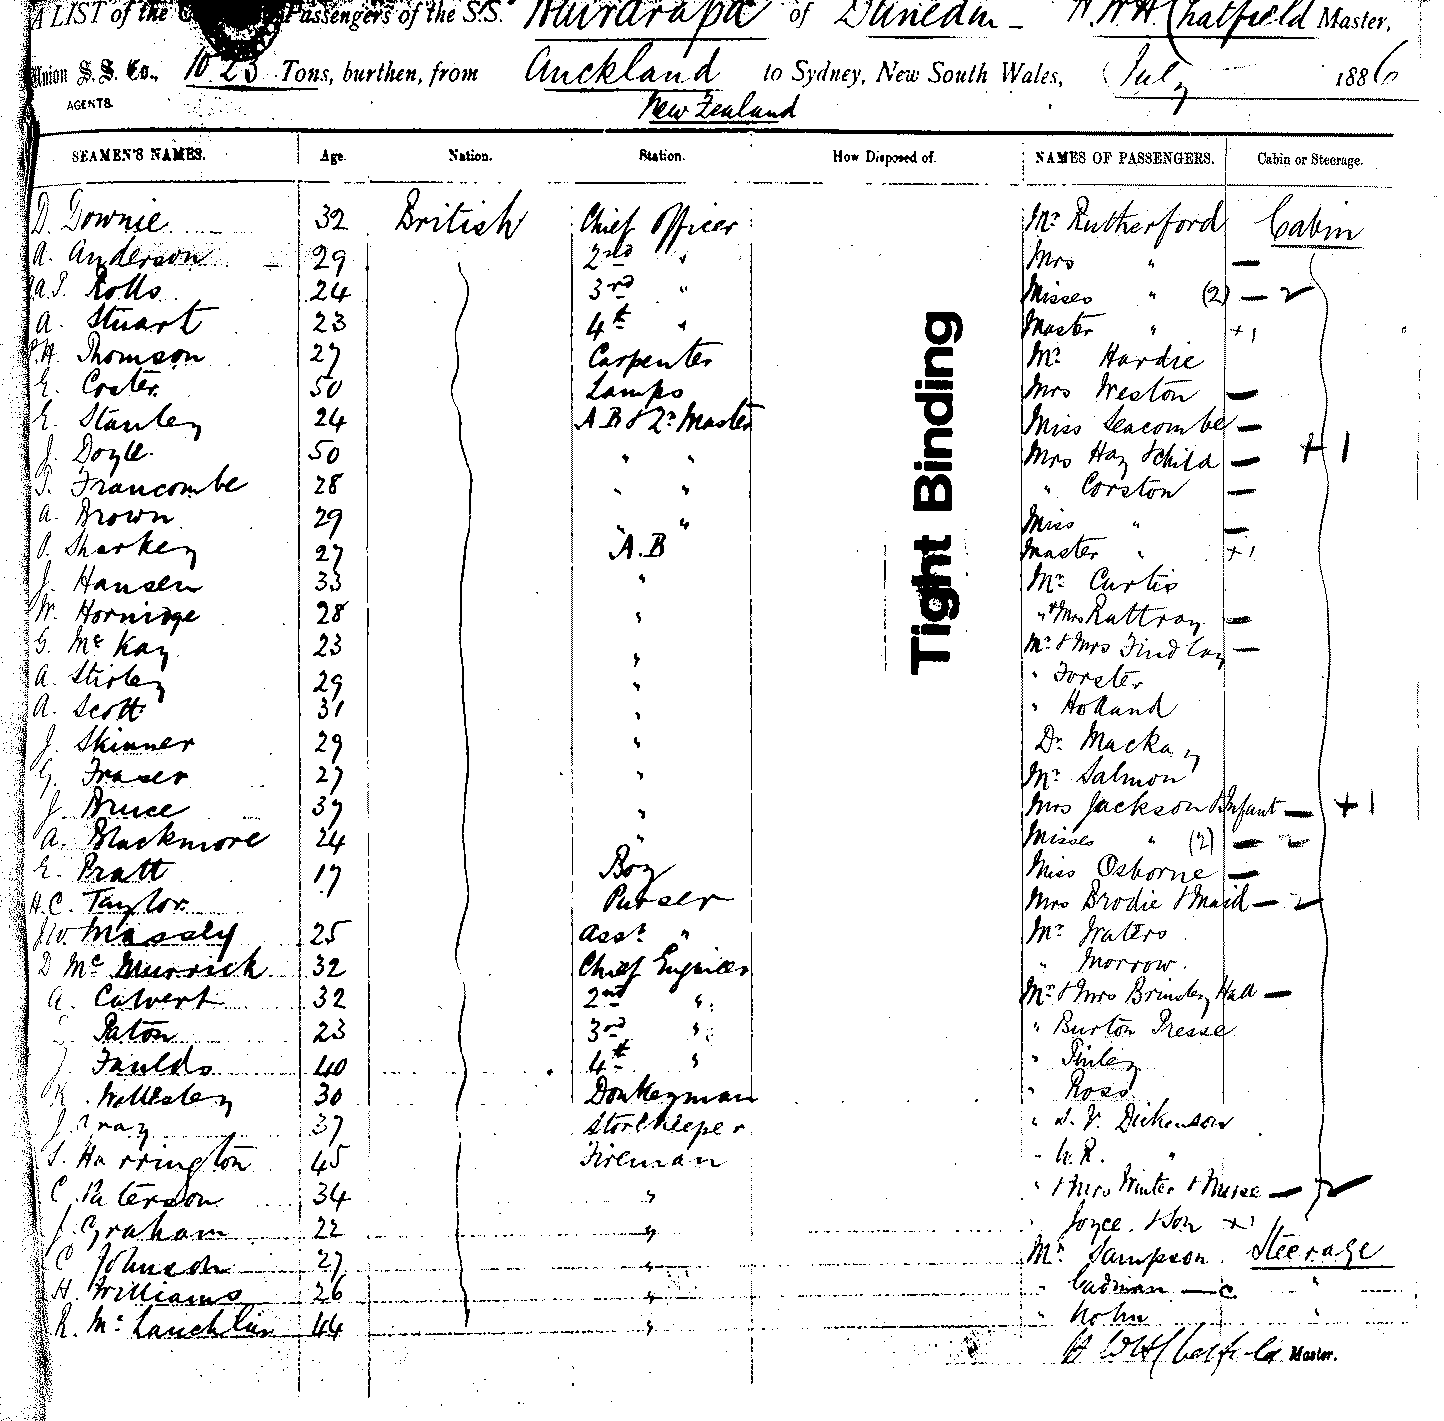 A LIST of the Passengers of the S.S. Wairarapa of Dunedin - H.W.H. Chatfield Master,
Union S. S. Co., 1023 Tons, burthen, from Auckland to Sydney, New South Wales, July 1886
AGENTS. New Zealand
SEAMEN'S NAMES. Age. Nation. Station. How Disposed of. NAMES OF PASSENGERS. Cabin or Steerage.
D. Downie 32 British Chief Officer Mr Rutherford Cabin
A. Anderson 29 2nd " Mrs " —
Rolls 24 3rd " Misses " (2) — 2
A. Stuart 23 4th " Master " +1
Thomson 27 Carpenter Mr Hardie
E. Coster 50 Lamps Mrs Weston —
E. Stanley 24 AB & Qr Master Miss Seacombe —
J. Doyle 50 " " Mrs Hay & child — +1
T. Francombe 28 " " " Corston —
A. Brown 29 " " Miss " —
Sharkey 27 A.B Master " +1
J. Hansen 33 " Mr Curtis
W. Hornidge 28 " " & Mrs Rattray —
G. Mc Kay 23 " Mr & Mrs Findlay —
A. Stirley 29 " " Forster
A. Scott 31 " " Holland
J. Skinner 29 " Dr Mackay
G. Fraser 27 " Mr Salmon
J. Bruce 37 " Mrs Jackson & Infant — +1
A. Blackmore 24 " Misses " (2) — 2
E. Pratt 17 Boy Miss Osborne —
H.C. Taylor Purser Mrs Brodie & Maid — 2
J.W. Massey 25 Asst " Mr Waters
D Mc Murrich 32 Chief Engineer " Morrow
A. Calvert 32 2nd " Mr & Mrs Brinsley Hall —
Paton 23 3rd " " Burton Presse
J. Faulds 40 4th " " Finley
Wellesley 30 Donkeyman " Ross
J. Gray 37 Storekeeper " Dickenson
Harrington 45 Fireman " "
C. Paterson 34 " " & Mrs Winter & Nurse — 2
J. Graham 22 " Joyce & Son +1
C Johnson 27 " Mr Sampson Steerage
H. Williams 26 " " Cadman — c "
R. Mc Lauchlin 44 " " "
H W H Chatfield Master.
Tight Binding